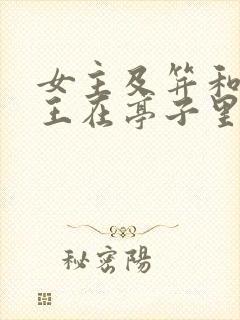 女主及笄和
王在亭子里
秘密陽